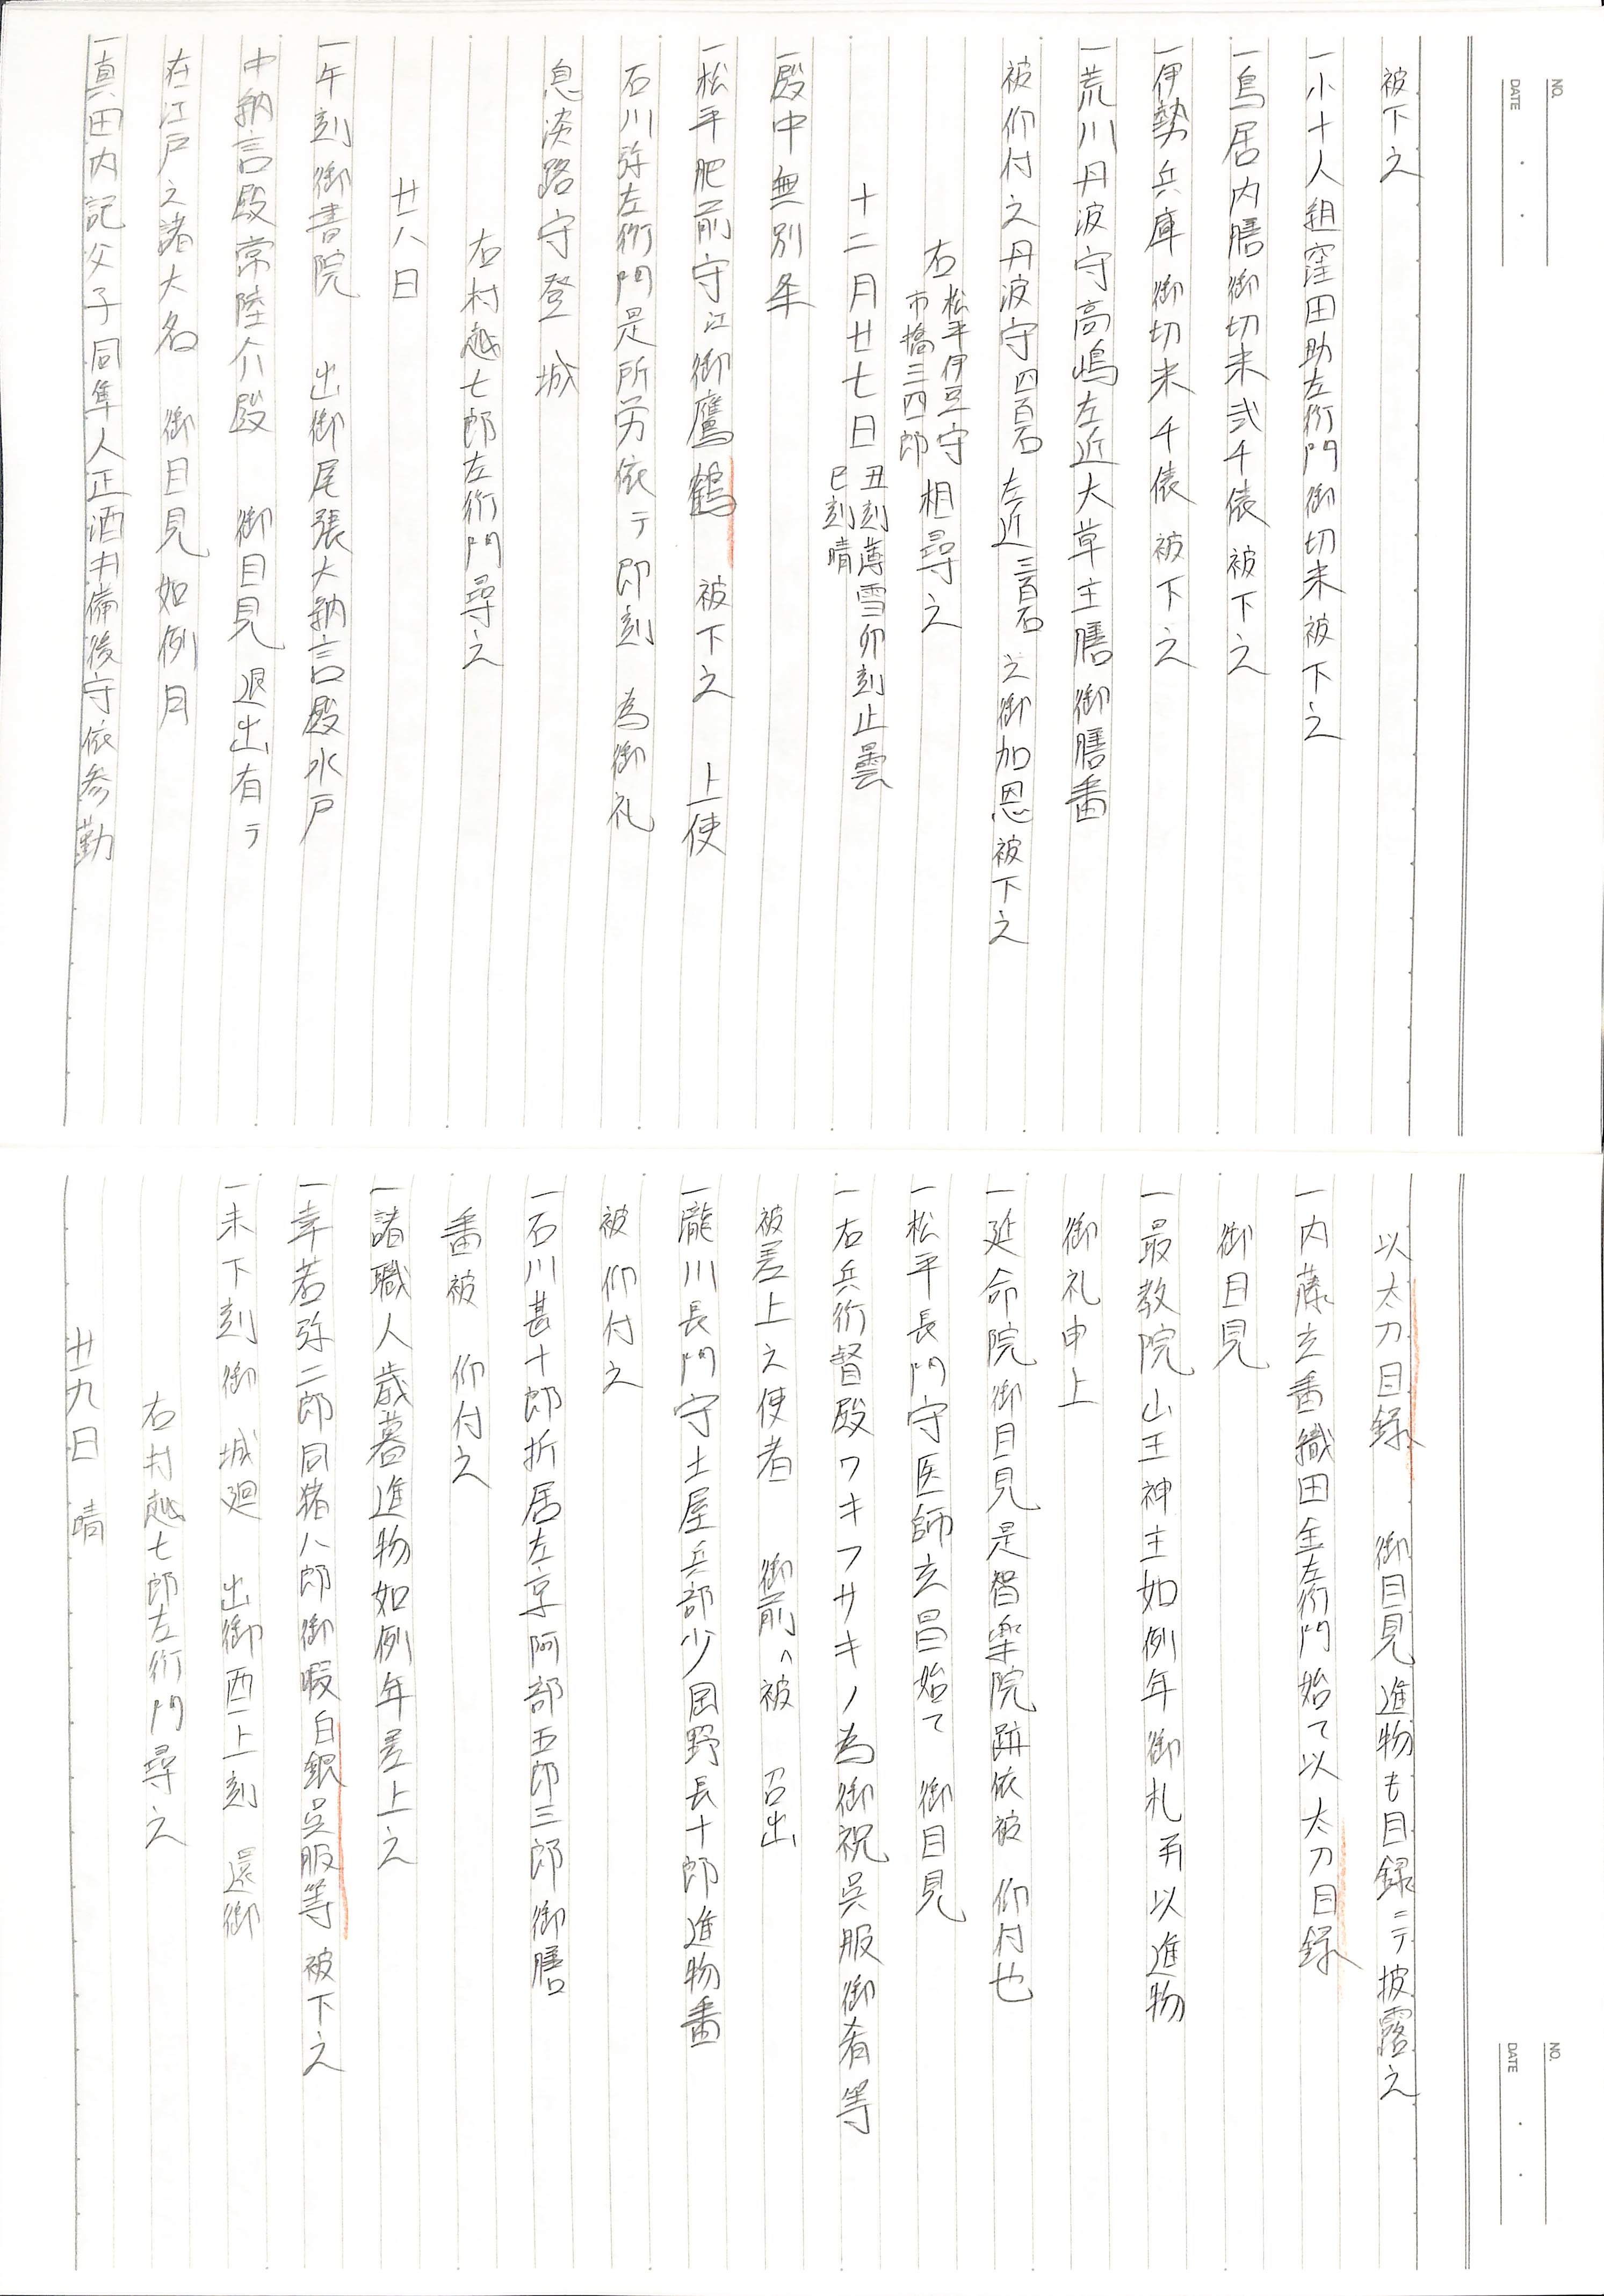 NO.
DATE
被下之
一小十人組窪田助左衛門御切米被下之
一鳥居内膳御切米弐千俵 被下之
一伊勢兵庫 御切米 千俵 被下之
一荒川丹波守高嶋左近大草主膳 御膳番
被仰付之丹波守四百石 左近三百石 之御加恩 被下之
右 松平伊豆守 市橋三四郎 相尋之
十二月廿七日 丑刻薄雪卯刻止曇 巳刻晴
一殿中無別条
一松平肥前守江御鷹鶴 被下之 上使
石川弥左衛門是所労依テ即刻 為御礼
息淡路守登 城
右村越七郎左衛門尋之
廿八日
一午刻御書院 出御尾張大納言殿水戸
中納言殿常陸介殿 御目見 退出有テ
在江戸之諸大名 御目見如例月
一真田内記父子同隼人正酒井備後守依参勤
NO.
DATE
以太刀目録 御目見 進物も目録ニテ披露之
一内藤主番織田全左衛門始て以太刀目録
御目見
一最教院山王神主如例年御札弄以進物
御礼申上
一延命院御目見是智楽院跡依被 仰付也
一松平長門守医師玄昌始て 御目見
一右兵衛督殿ワキフサキノ為御祝呉服御肴等
被差上之使者 御前へ被 召出
一瀧川長門守土屋兵部少岡野長十郎進物番
被仰付之
一石川甚十郎折居左京阿部五郎三郎御膳
番被 仰付之
一諸職人歳暮進物如例年差上之
一幸若弥二郎同猪八郎御暇白銀呉服等 被下之
一未下刻御 城廻 出御酉上刻 還御
右村越七郎左衛門尋之
廿九日 晴